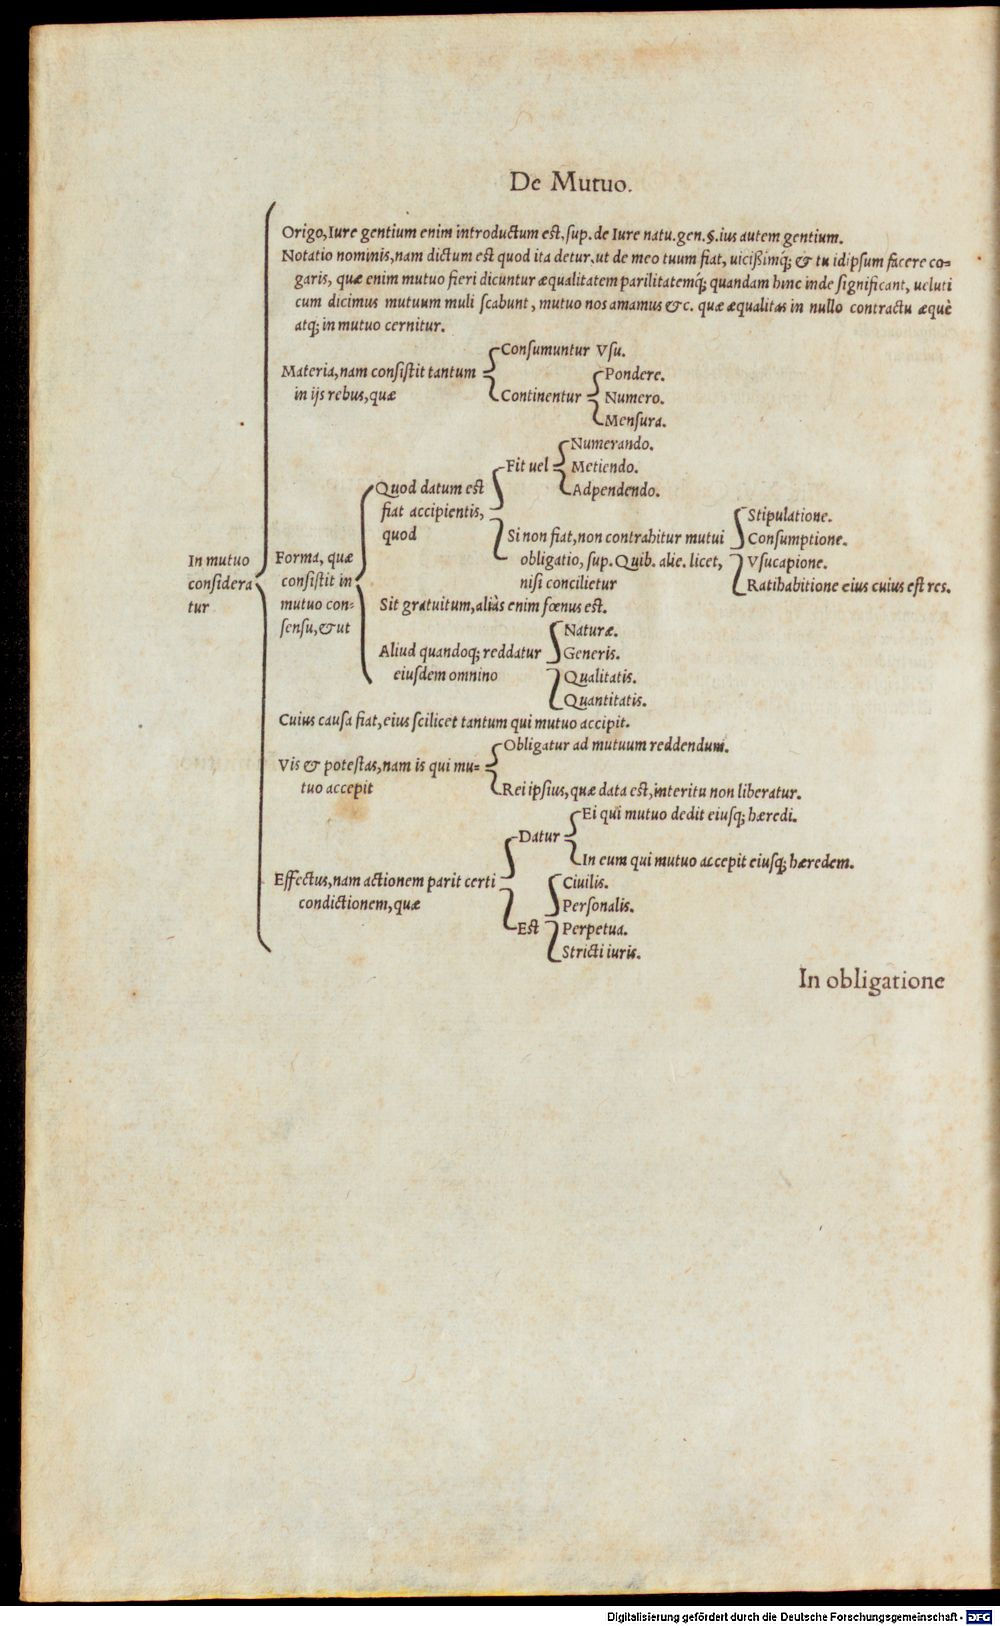 De Mutuo.
Origo, Iure gentium enim introductum est, sup. de Iure natu. gen. §. ius autem gentium.
Notatio nominis, nam dictum est quod ita detur, ut de meo tuum fiat, uicißimq́; & tu idipsum facere co=
garis, quæ enim mutuo fieri dicuntur æqualitatem parilitatemq́; quandam hinc inde significant, ueluti
cum dicimus mutuum muli scabunt, mutuo nos amamus &c. quæ æqualitas in nullo contractu æquè
atq; in mutuo cernitur.
Consumuntur Vsu.
Materia, nam consistit tantum
in ijs rebus, quæ
Continentur
Pondere.
Numero.
Mensura.
In mutuo
considera
tur
Forma, quæ
consistit in
mutuo con=
sensu, & ut
Quod datum est
fiat accipientis,
quod
Fit uel
Numerando.
Metiendo.
Adpendendo.
Si non fiat, non contrahitur mutui
obligatio, sup. Quib. alie. licet,
nisi concilietur
Stipulatione.
Consumptione.
Vsucapione.
Ratihabitione eius cuius est res.
Sit gratuitum, aliàs enim fœnus est.
Aliud quandoq; reddatur
eiusdem omnino
Naturæ.
Generis.
Qualitatis.
Quantitatis.
Cuius causa fiat, eius scilicet tantum qui mutuo accipit.
Vis & potestas, nam is qui mu=
tuo accepit
Obligatur ad mutuum reddendum.
Rei ipsius, quæ data est, interitu non liberatur.
Effectus, nam actionem parit certi
condictionem, quæ
Datur
Ei qui mutuo dedit eiusq; hæredi.
In eum qui mutuo accepit eiusq; hæredem.
Est
Ciuilis.
Personalis.
Perpetua.
Stricti iuris.
In obligatione
Digitalisierung gefördert durch die Deutsche Forschungsgemeinschaft - DFG